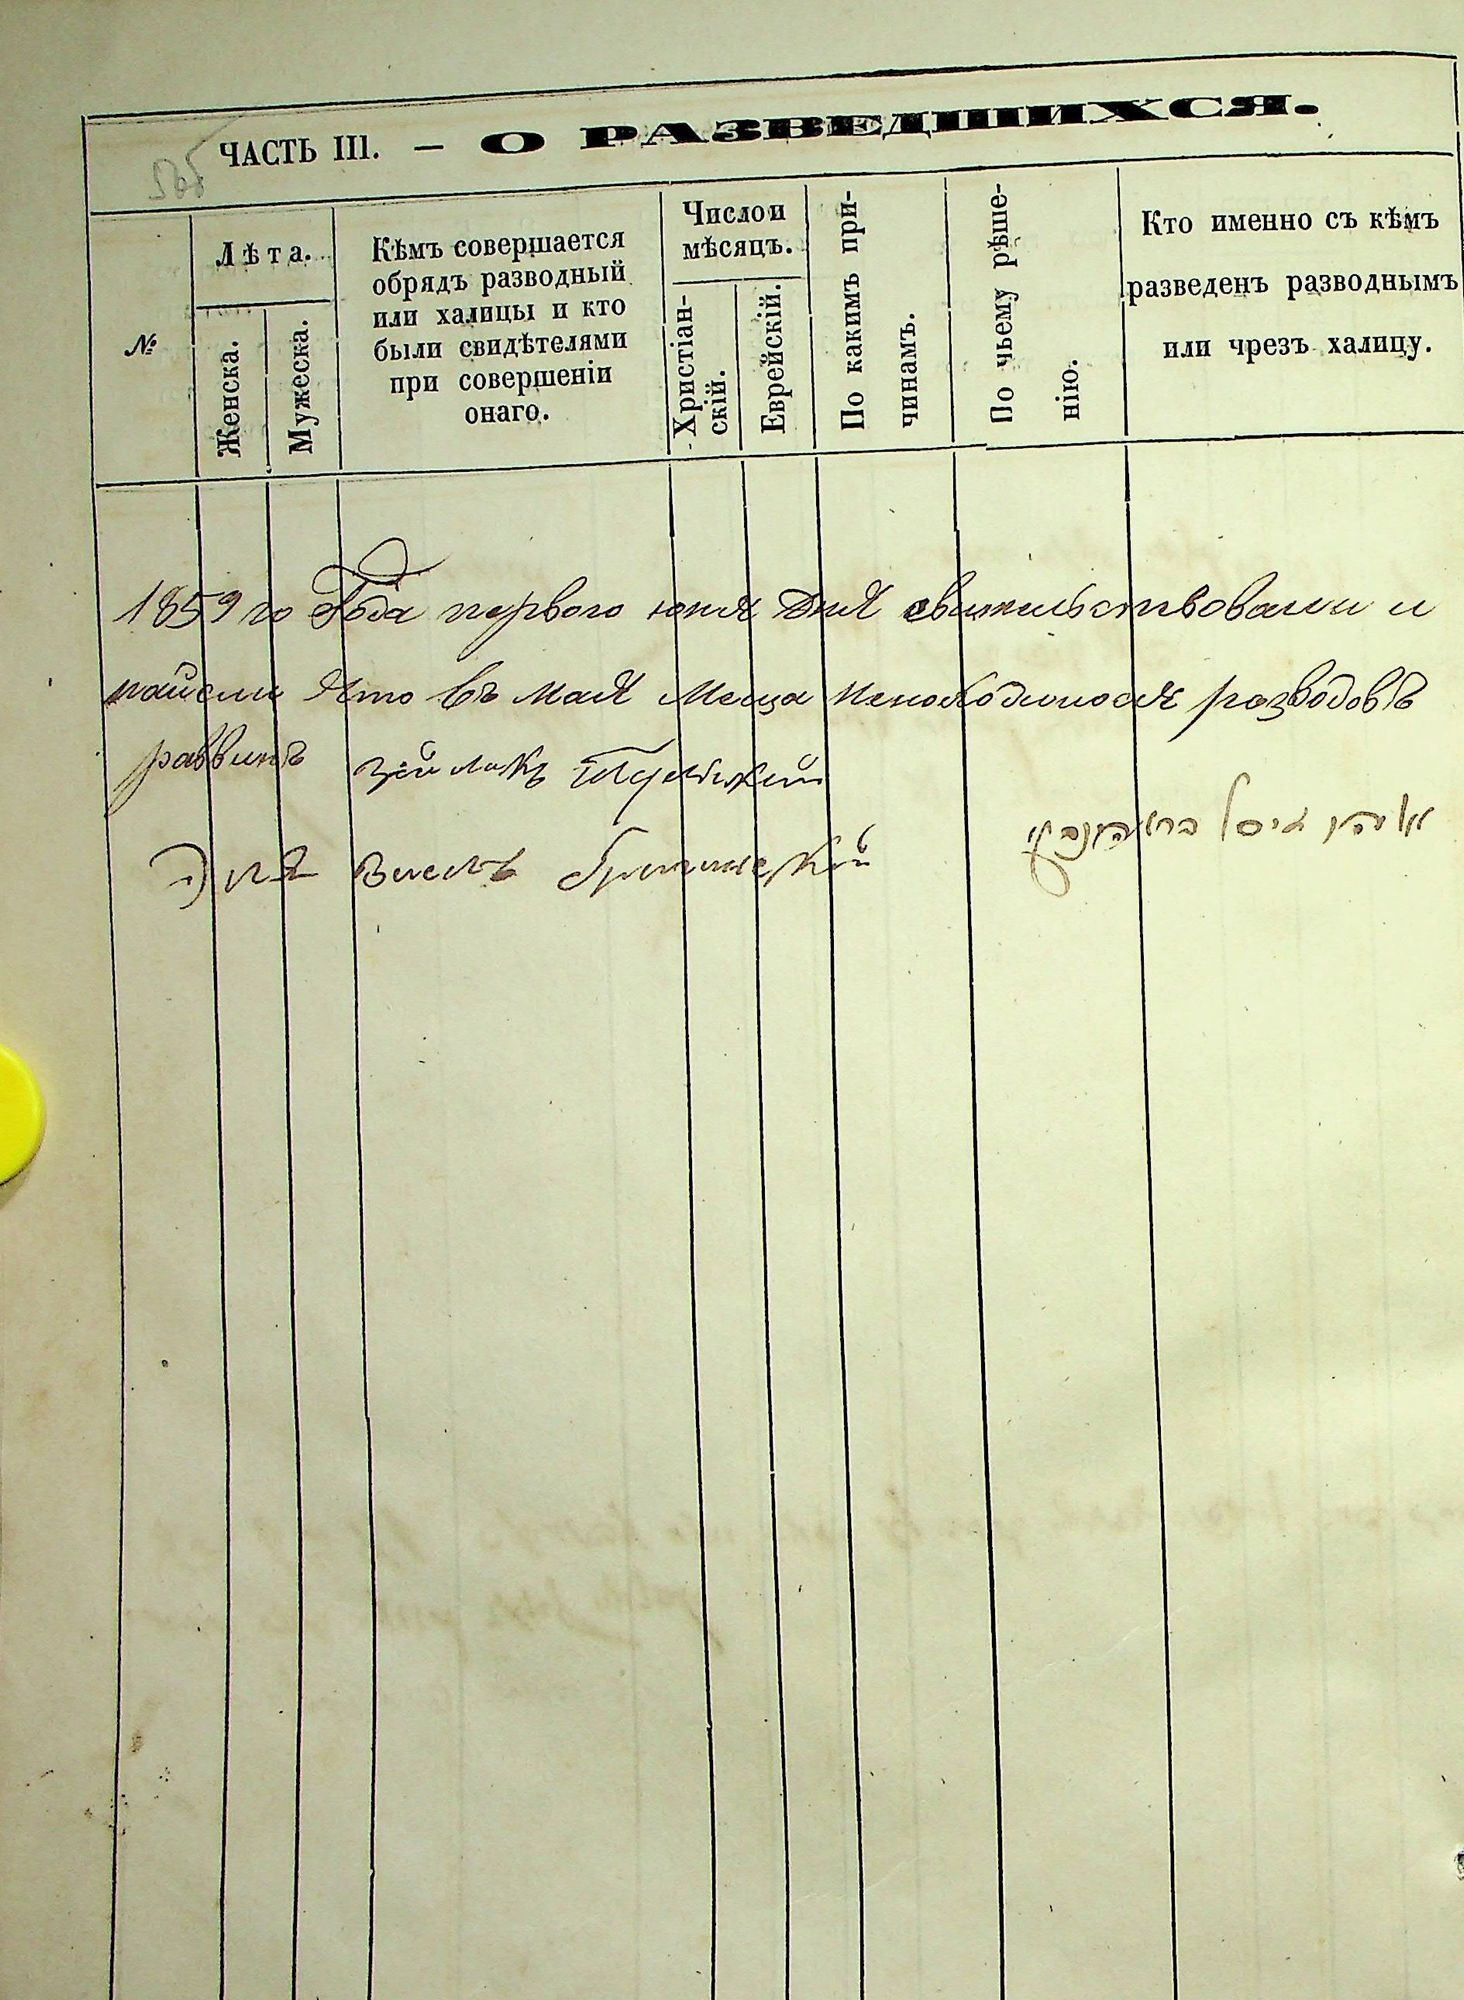 ЧАСТЬ III. — О РАЗВЕДШИХСЯ.
№
Лѣта.
Женска.
Мужеска.
Кѣмъ совершается
обрядъ разводный
или халицы и кто
были свидѣтелями
при совершеніи
онаго.
Число и
мѣсяцъ.
Христіан-
скій.
Еврейскій.
По какимъ при-
чинамъ.
По чьему рѣше-
нію.
Кто именно съ кѣмъ
разведенъ разводнымъ
или чрезъ халицу.
1859 го Года первого юня Дня свительствовали и
нашели Что въ мая Меца разводовъ
раввинъ